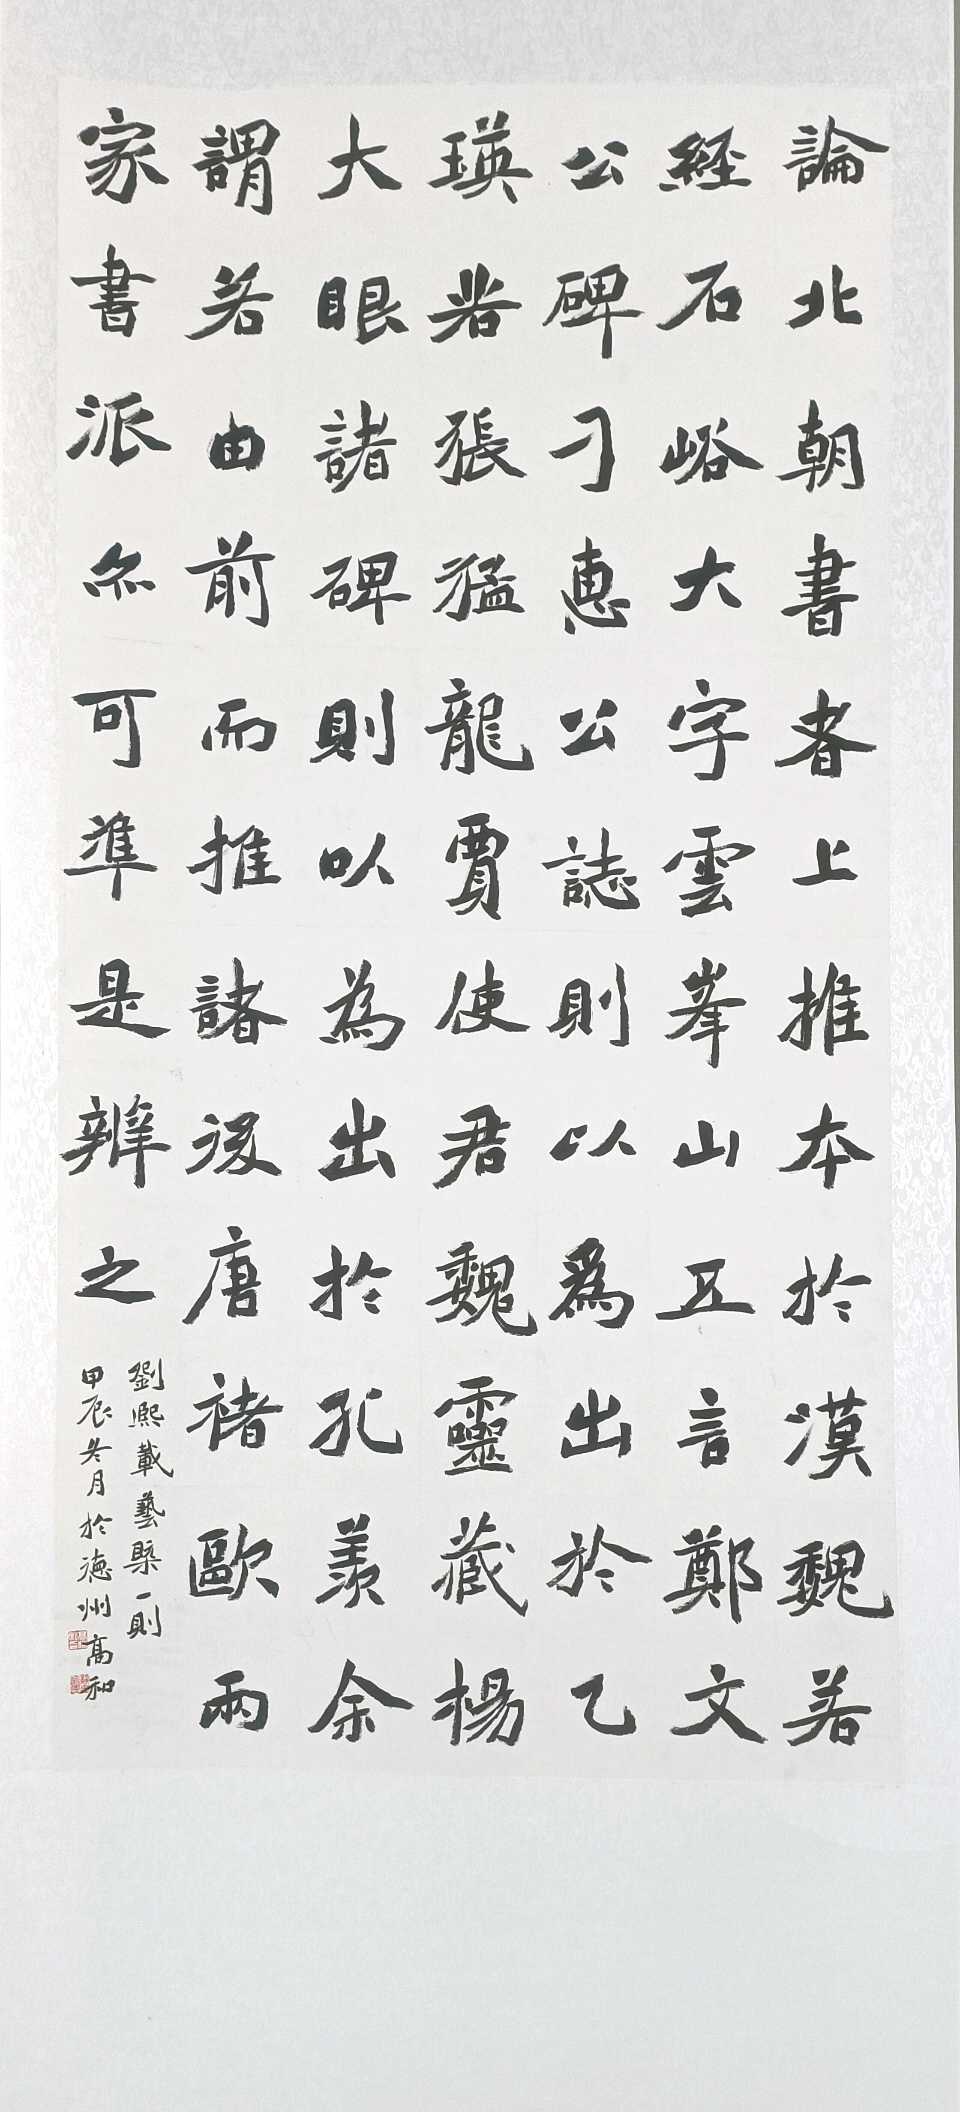 論北朝書者上推本於漢魏若
經石峪大字雲峯山五言鄭文
公碑刁惠公誌則以為出於乙
瑛若張猛龍賈使君魏靈藏楊
大眼諸碑則以為出於孔羨余
謂若由前而推諸後唐褚歐兩
家書派亦可準是辨之
劉熙載藝槩一則
甲辰冬月於德州高和